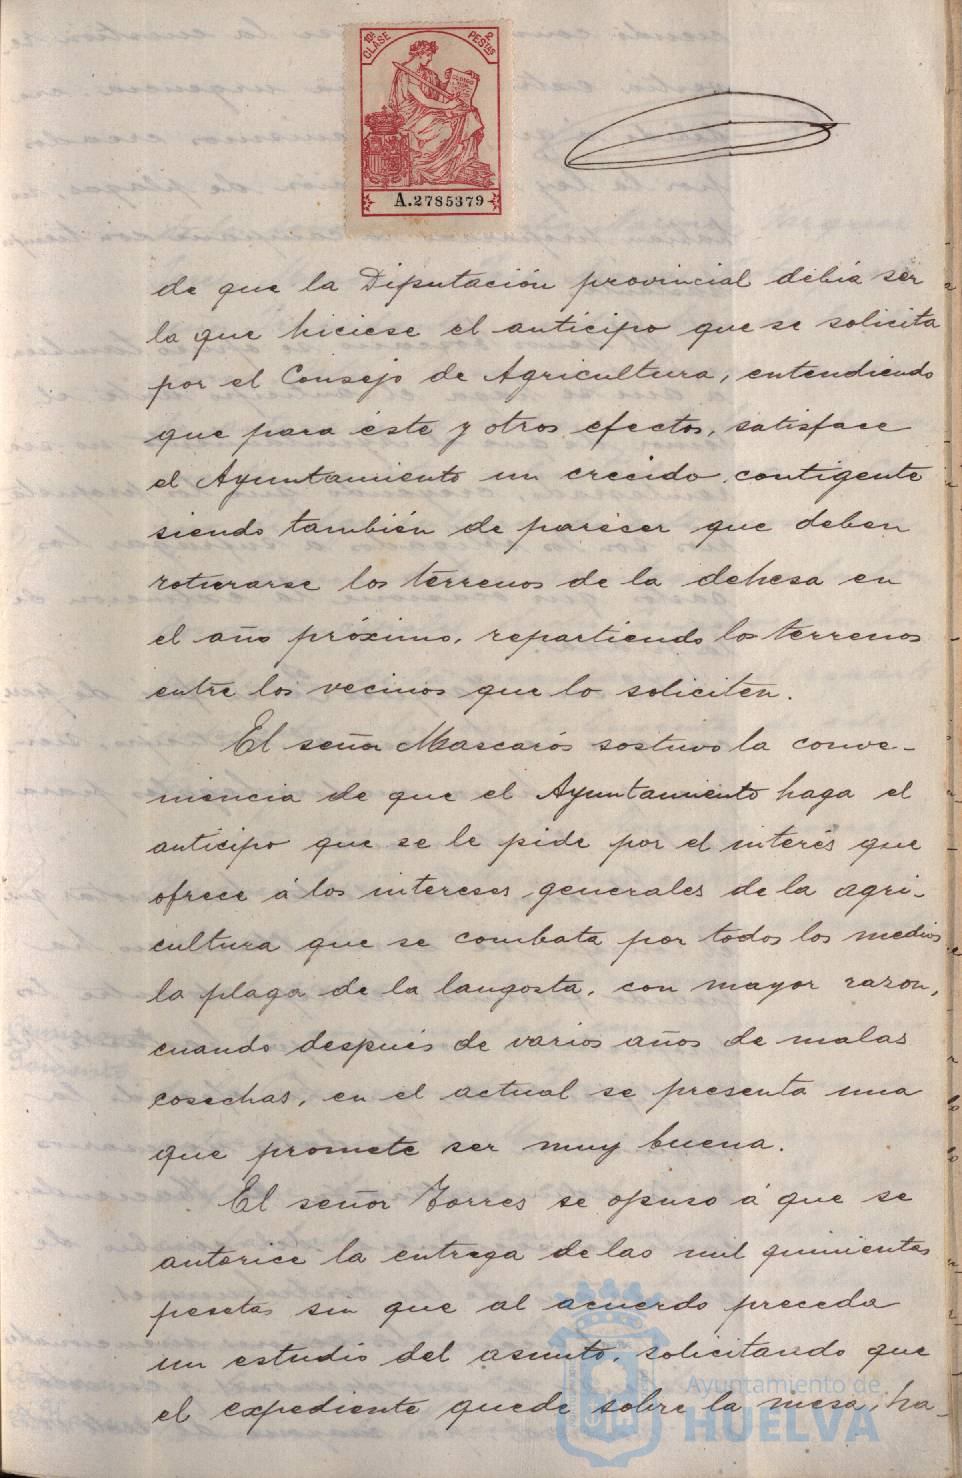 10ª CLASE 2 PESTAS
A.2785379
de que la Diputación provincial debia ser
la que hiciese el anticipo que se solicita
por el Consejo de Agricultura, entendiendo
que para éste y otros efectos, satisface
el Ayuntamiento un crecido contigente
siendo también de parecer que deben
roturarse los terrenos de la dehesa en
el año próximo, repartiendo los terrenos
entre los vecinos que lo soliciten.
El señor Mascarós sostuvo la conve-
niencia de que el Ayuntamiento haga el
anticipo que se le pide por el interés que
ofrece á los intereses generales de la agri-
cultura que se combata por todos los medios
la plaga de la langosta, con mayor razon,
cuando después de varios años de malas
cosechas, en el actual se presenta una
que promete ser muy buena.
El señor Torres se opuso á que se
autorice la entrega de las mil quinientas
pesetas sin que al acuerdo preceda
un estudio del asunto, solicitando que
el expediente quede sobre la mesa, ha-
Ayuntamiento de
HUELVA